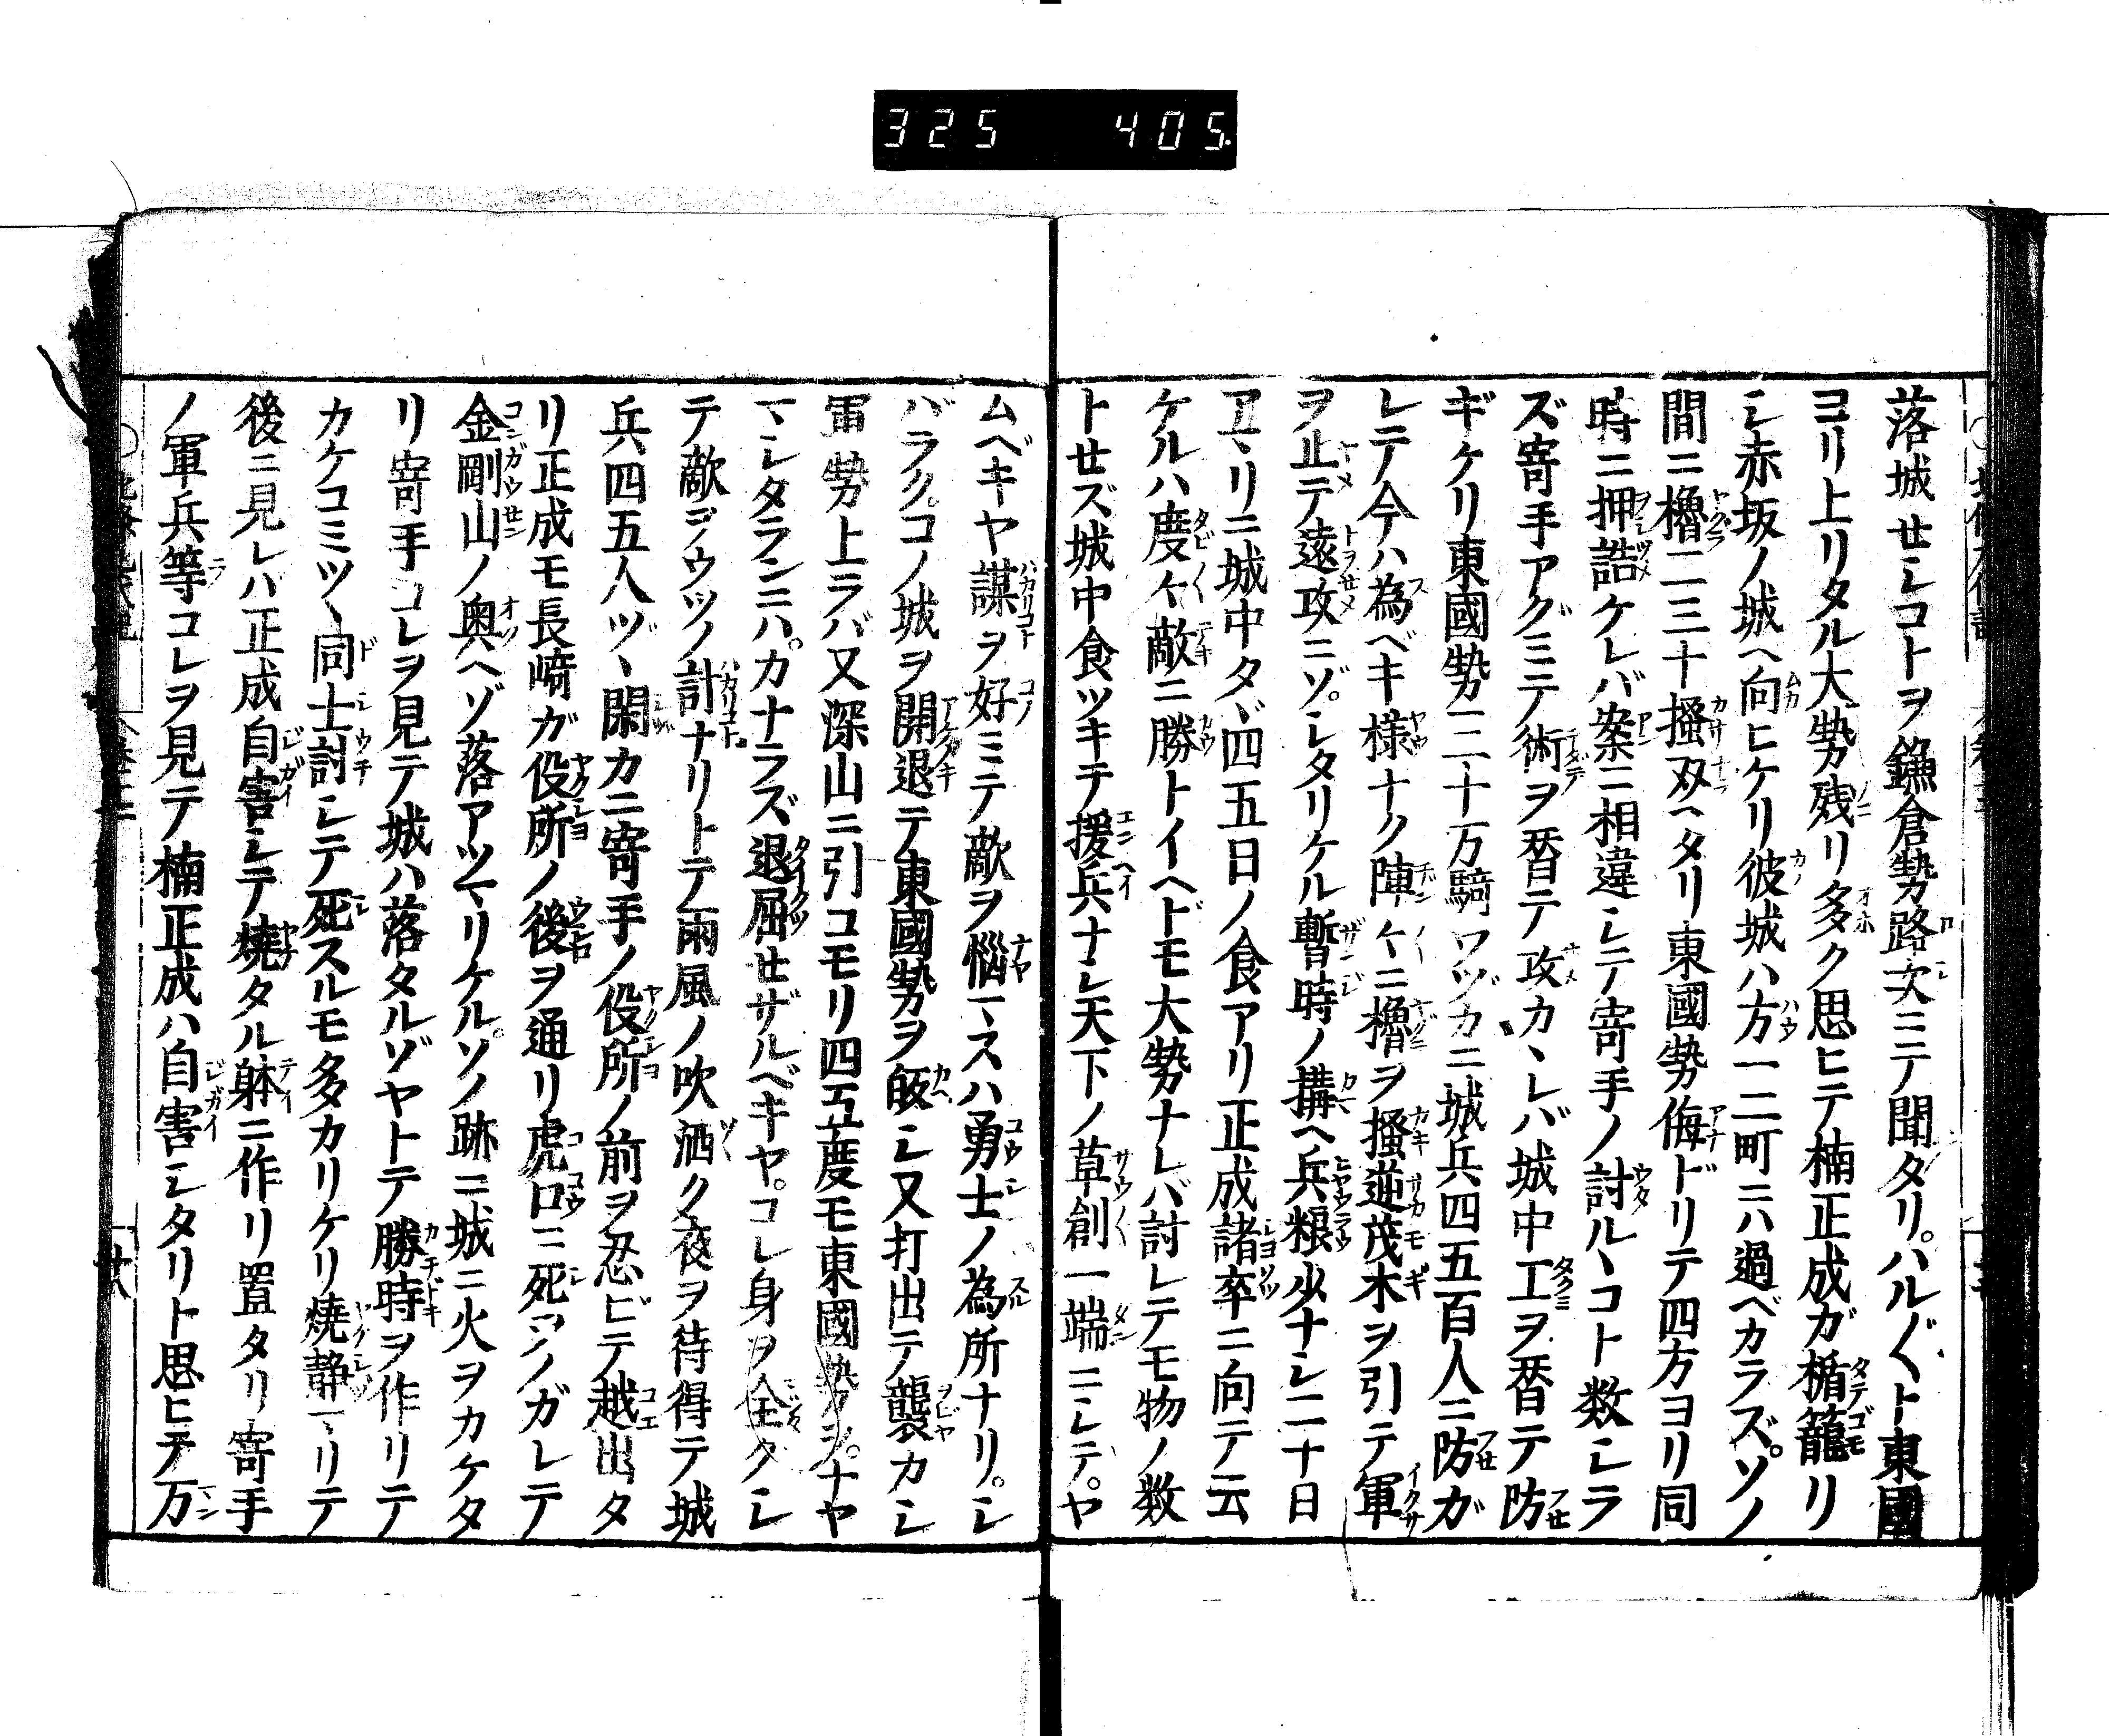 325 405
落城セシコトヲ鎌倉勢路次ニテ聞タリ。ハル〲ト東國
ヨリ上リタル大勢残リ多ク思ヒテ楠正成ガ楯籠リ
シ赤坂ノ城ヘ向ヒケリ彼城ハ方一二町ニハ過ベカラズ。ソノ
間ニ櫓二三十掻双ヘタリ東國勢侮ドリテ四方ヨリ同
時ニ押詰ケレバ案ニ相違シテ寄手ノ討ルヽコト数シラ
ズ寄手アグミテ術ヲ替テ攻カヽレバ城中工ヲ替テ防
ギケリ東國勢三十万騎ワヅカニ城兵四五百人ニ防ガ
レテ今ハ為ベキ様ナク陣々ニ櫓ヲ掻逆茂木ヲ引テ軍
ヲ止テ遠攻ニゾ。シタリケル暫時ノ搆ヘ兵粮少ナシ二十日
アマリニ城中タヾ四五日ノ食アリ正成諸卒ニ向テ云
ケルハ度々敵ニ勝トイヘドモ大勢ナレバ討レテモ物ノ数
トセズ城中食ツキテ援兵ナシ天下ノ草創一端ニシテ。ヤ
ムベキヤ謀ヲ好ミテ敵ヲ惱マスハ勇士ノ為所ナリ。シ
バラク。コノ城ヲ開退テ東國勢ヲ皈シ又打出テ襲カシ
軍勢上ラバ又深山ニ引コモリ四五度モ東國勢ヲ。ナヤ
マシタランニハ。カナラズ退屈セザルベキヤ。コレ身ヲ全クシ
テ敵ヲウツノ計ナリトテ雨風ノ吹洒ク夜ヲ待得テ城
兵四五人ヅヽ閑カニ寄手ノ役所ノ前ヲ忍ビテ越出タ
リ正成モ長﨑ガ役所ノ後ヲ通リ虎口ニ死ヲノガレテ
金剛山ノ奥ヘゾ落アツマリケル。ソノ跡ニ城ニ火ヲカケタ
リ寄手コレヲ見テ城ハ落タルゾヤトテ勝時ヲ作リテ
カケコミツヽ同士討シテ死スルモ多カリケリ燒静マリテ
後ニ見レハ正成自害シテ燒タル躰ニ作リ置タリ寄手
ノ軍兵等コレヲ見テ楠正成ハ自害シタリト思ヒテ万